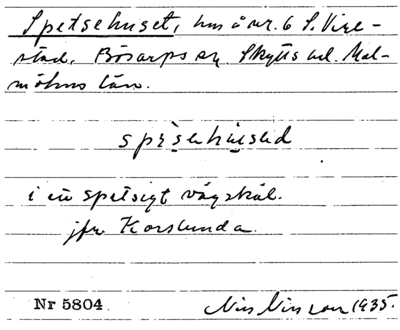 Spetsehuset, hus å nr. 6 S. Vire-
stad, Bösarps sn, Skytts hd. Mal-
möhus län.
i ett spetsigt vägskäl.
jfr Korslunda.
Nr 5804 Nils Nilsson 1935.